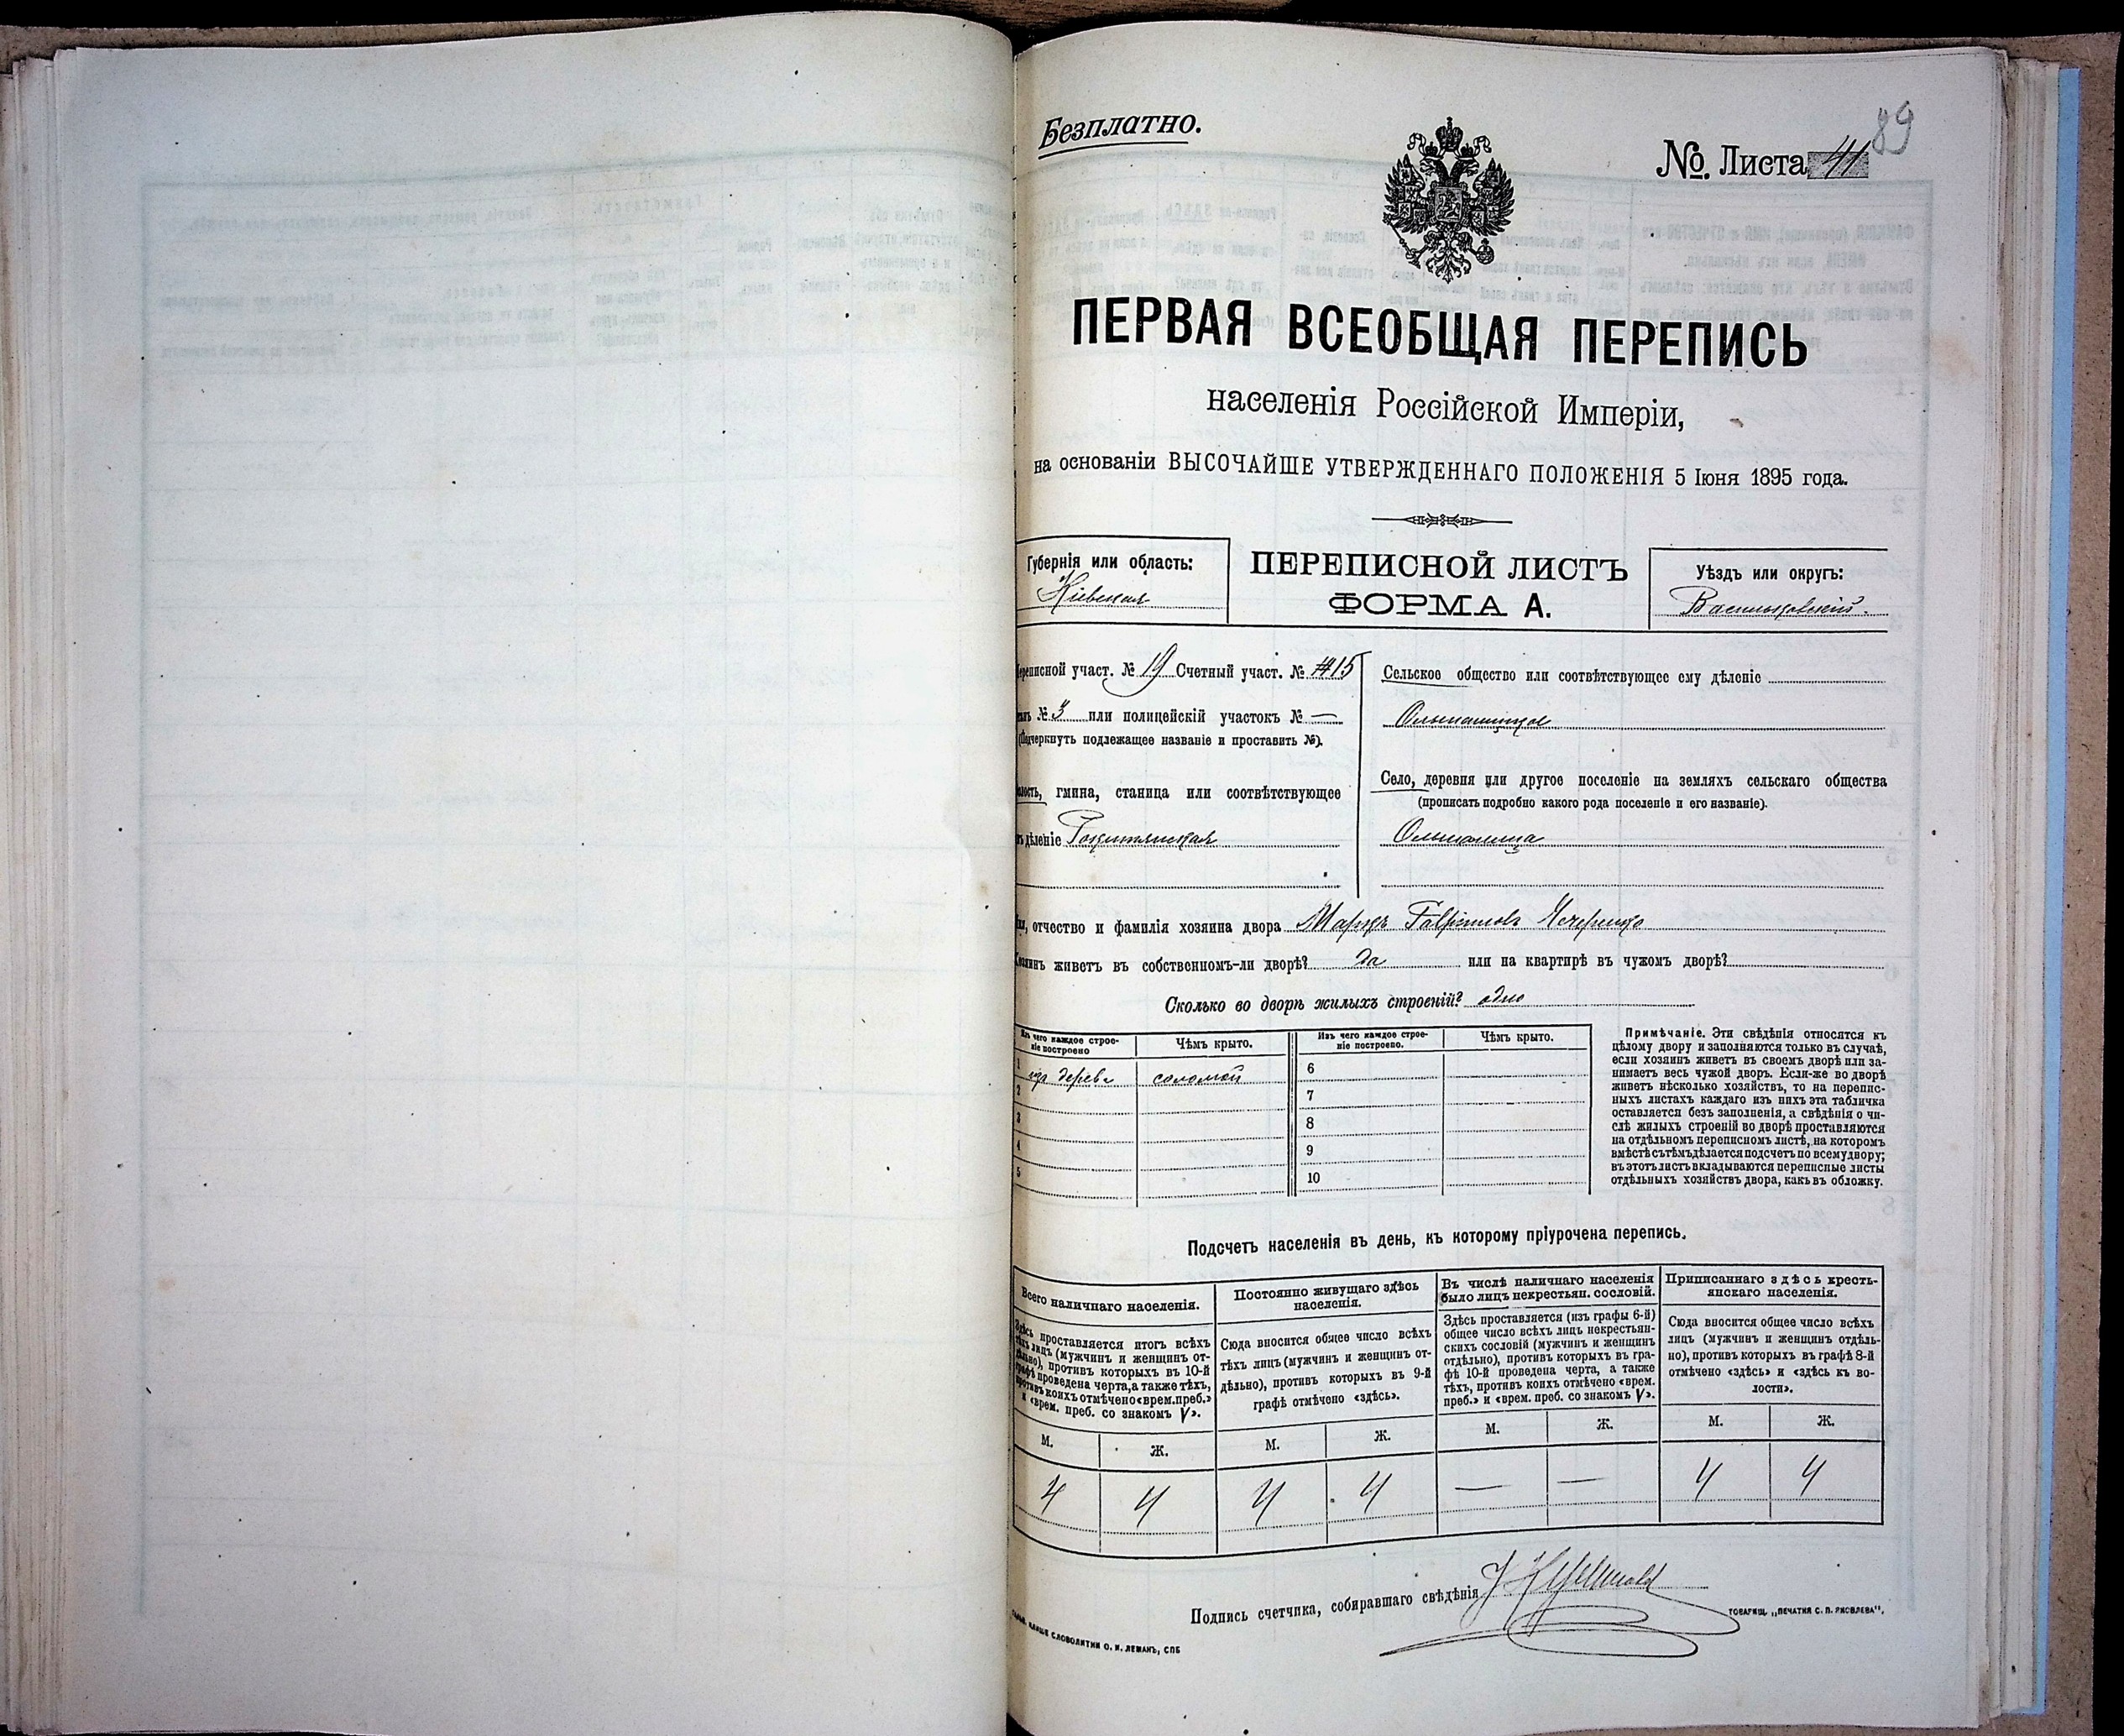 Безплатно.
89
№. Листа 41
ПЕРВАЯ ВСЕОБЩАЯ ПЕРЕПИСЬ
населенія Россійской Имперіи,
на основаніи ВЫСОЧАЙШЕ УТВЕРЖДЕННАГО ПОЛОЖЕНІЯ 5 Іюня 1895 года.
Губернія или область:
Кіевская
ПЕРЕПИСНОЙ ЛИСТЪ
ФОРМА А.
Уѣздъ или округъ:
Васильковскій.
ереписной участ. № 19 Счетный участ. № 15
№ 3 или полицейскій участокъ № —
(Подчеркнуть подлежащее названіе и проставить №).
лость, гмина, станица или соотвѣтствующее
дѣленіе Рокитянская
Сельское общество или соотвѣтствующее ему дѣленіе
Ольшаницкое
Село, деревня или другое поселеніе на земляхъ сельскаго общества
(прописать подробно какого рода поселеніе и его названіе).
Ольшаница
отчество и фамилія хозяина двора Гаврииловъ
Хозяинъ живетъ въ собственномъ-ли дворѣ? да или на квартирѣ въ чужомъ дворѣ?
Сколько во дворѣ жилыхъ строеній? одно
Изъ чего каждое строе-
ніе построено
Чѣмъ крыто.
Изъ чего каждое строе-
ніе построено.
Чѣмъ крыто.
1 изъ дерева соломой 6
2 7
3 8
4 9
5 10
Примѣчаніе. Эти свѣдѣнія относятся къ
цѣлому двору и заполняются только въ случаѣ,
если хозяинъ живетъ въ своемъ дворѣ или за-
нимаетъ весь чужой дворъ. Если-же во дворѣ
живетъ нѣсколько хозяйствъ, то на перепис-
ныхъ листахъ каждаго изъ нихъ эта табличка
оставляется безъ заполненія, а свѣдѣнія о чи-
слѣ жилыхъ строеній во дворѣ проставляются
на отдѣльномъ переписномъ листѣ, на которомъ
вмѣстѣ съ тѣмъ дѣлается подсчетъ по всему двору;
въ этотъ листъ вкладываются переписные листы
отдѣльныхъ хозяйствъ двора, какъ въ обложку.
Подсчетъ населенія въ день, къ которому пріурочена перепись.
Всего наличнаго населенія.
Здѣсь проставляется итогъ всѣхъ
тѣхъ лицъ (мужчинъ и женщинъ от-
дѣльно), противъ которыхъ въ 10-й
графѣ проведена черта, а также тѣхъ,
противъ коихъ отмѣчено «врем. преб.»
и «врем. преб. со знакомъ V».
Постоянно живущаго здѣсь
населенія.
Сюда вносится общее число всѣхъ
тѣхъ лицъ (мужчинъ и женщинъ от-
дѣльно), противъ которыхъ въ 9-й
графѣ отмѣчено «здѣсь».
Въ числѣ наличнаго населенія
было лицъ некрестьян. сословій.
Здѣсь проставляется (изъ графы 6-й)
общее число всѣхъ лицъ некрестьян-
скихъ сословій (мужчинъ и женщинъ
отдѣльно), противъ которыхъ въ гра-
фѣ 10-й проведена черта, а также
тѣхъ, противъ коихъ отмѣчено «врем.
преб.» и «врем. преб. со знакомъ V».
Приписаннаго здѣсь кресть-
янскаго населенія.
Сюда вносится общее число всѣхъ
лицъ (мужчинъ и женщинъ отдѣль-
но), противъ которыхъ въ графѣ 8-й
отмѣчено «здѣсь» и «здѣсь къ во-
лости».
М. Ж. М. Ж. М. Ж. М. Ж.
4 4 4 4 — — 4 4
Подпись счетчика, собиравшаго свѣдѣнія
КЛИШЕ СЛОВОЛИТНИ О. И. ЛЕМАНЪ, СПБ
ТОВАРИЩ. „ПЕЧАТНЯ С. П. ЯКОВЛЕВА",